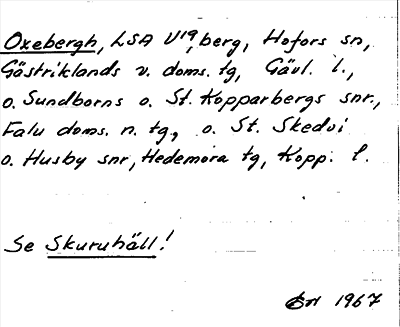 Oxebergh, LSA U19, berg, Hofors sn,
Gästriklands v. doms. tg, Gävl. l.,
o. Sundborns o. St. Kopparbergs snr.,
Falu doms. n. tg., o. St. Skedvi
o. Husby snr, Hedemora tg, Kopp. l.
Se Skuruhäll!
1967